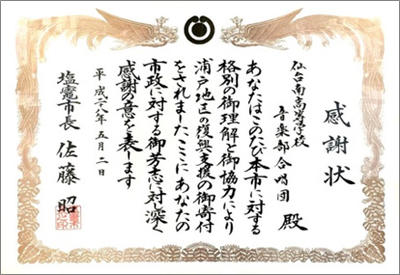 感謝状
仙台南高等学校
音楽部合唱団 殿
あなたはこのたび本市に対する
格別の御理解と御協力により
浦戸地区の復興支援の御寄付
をされましたここにあなたの
市政に対する御芳志に対し深く
感謝の意を表します
平成二八年五月二日
塩竈市長 佐藤 昭